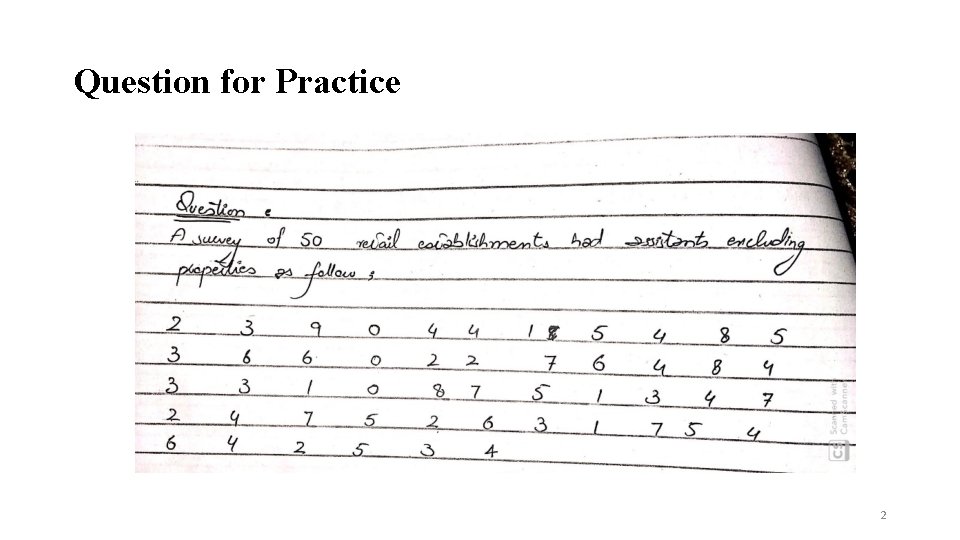 Question for Practice
Question :
A survey of 50 retail establishments had assistants excluding
properties as follow ;
2 3 9 0 4 4 1 5 4 8 5
3 6 6 0 2 2 7 6 4 8 4
3 3 1 0 8 7 5 1 3 4 7
2 4 7 5 2 6 3 1 7 5 4
6 4 2 5 3 4
CS Scanned with CamScanner
2